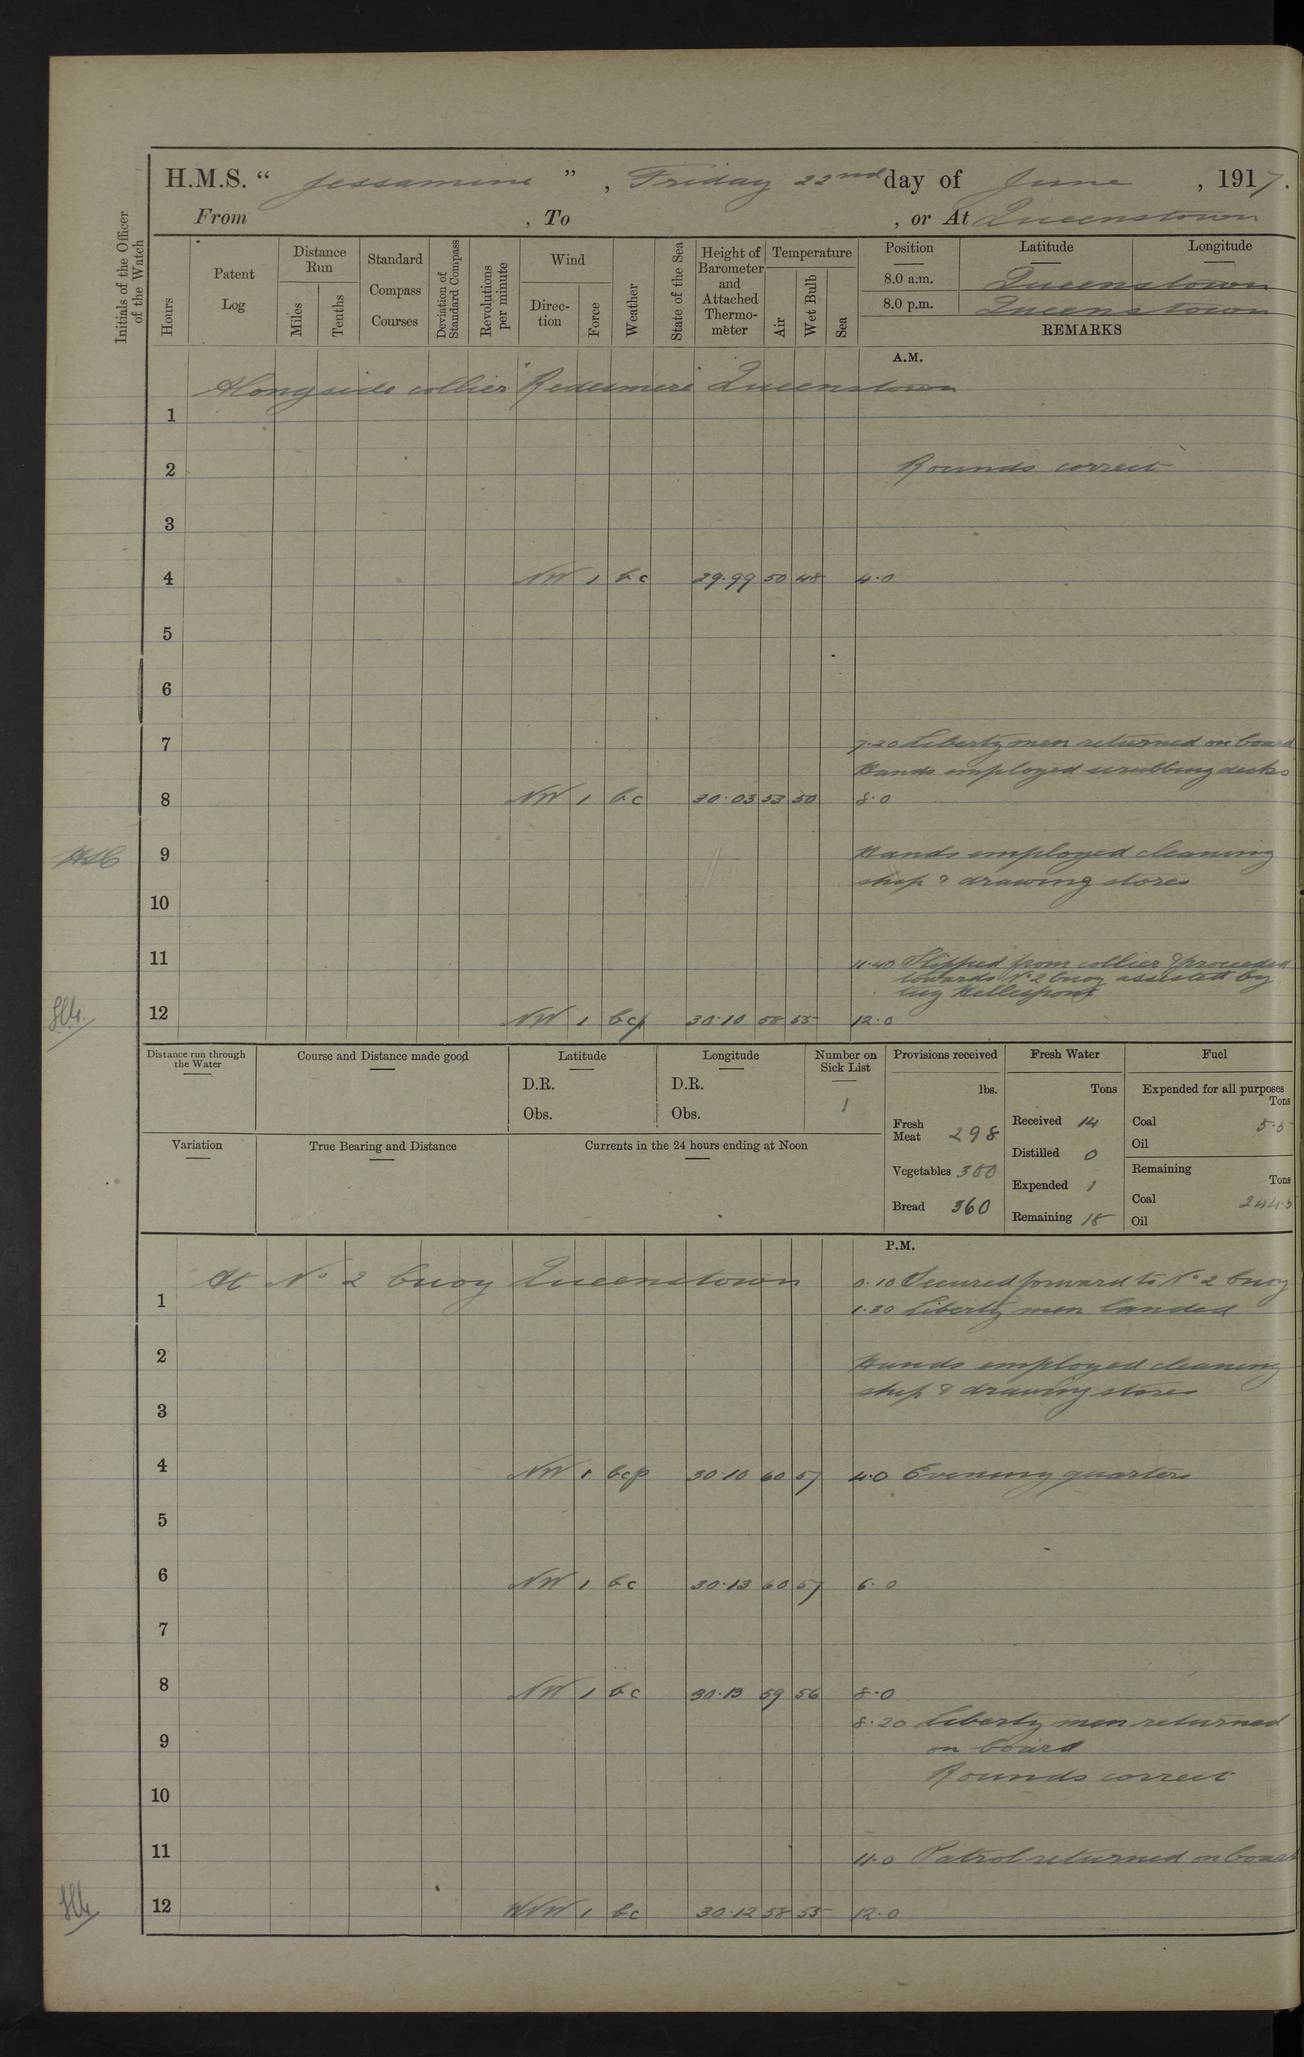 H.M.S. “ Jessamine ” , Friday 22nd day of June , 1917.
From , To , or At Queenstown
Initials of the Officer of the Watch
Hours
Patent Log
Distance Run
Miles
Tenths
Standard Compass Courses
Deviation of Standard Compass
Revolutions per minute
Wind
Direc-tion
Force
Weather
State of the Sea
Height of Barometer and Attached Thermo-meter
Temperature
Air
Wet Bulb
Sea
Position Latitude Longitude
8.0 a.m. Queenstown
8.0 p.m. Queenstown
REMARKS
A.M.
Alongside collier "Redesmere" Queenstown
1
2 Rounds correct
3
4 NW 1 bc 29.99 50 48 4.0
5
6
7 7.20 Liberty men returned on board
Hands employed scrubbing decks
8 NW 1 bc 30.03 53 50 8.0
9 Hands employed cleaning
ship & drawing stores
10
11 11.40 Slipped from collier & proceeded
towards No 2 buoy assisted by
tug Hellespont
12 NW 1 bcp 30.10 58 55 12.0
Distance run through the Water
Course and Distance made good
Latitude
D.R.
Obs.
Longitude
D.R.
Obs.
Number on Sick List
1
Variation
True Bearing and Distance
Currents in the 24 hours ending at Noon
Provisions received
lbs.
Fresh Meat 298
Vegetables 300
Bread 360
Fresh Water
Tons
Received 14
Distilled 0
Expended 1
Remaining 18
Fuel
Expended for all purposes
Tons
Coal 5.5
Oil
Remaining
Tons
Coal 244.5
Oil
P.M.
At No 2 buoy Queenstown 0.10 Secured forward to No 2 buoy
1 1.30 Liberty men landed
2 Hands employed cleaning
ship & drawing stores
3
4 NW 1 bcp 30.10 60 57 4.0 Evening quarters
5
6 NW 1 bc 30.13 60 57 6.0
7
8 NW 1 bc 30.13 59 56 8.0
8.20 Liberty men returned
9 on board
Rounds correct
10
11 11.0 Patrol returned on board
12 WNW 1 bc 30.12 58 55 12.0